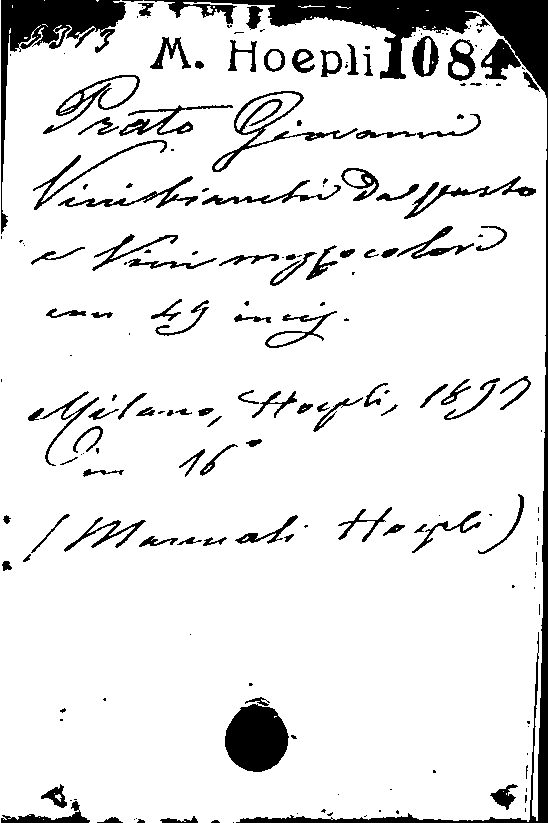 5313 M. Hoepli 1084
Prato Giovanni
Vini bianchi da pasto
e Vini mezzocolore
con 49 incis.
Milano, Hoepli, 1897
in 16°
(Manuali Hoepli)